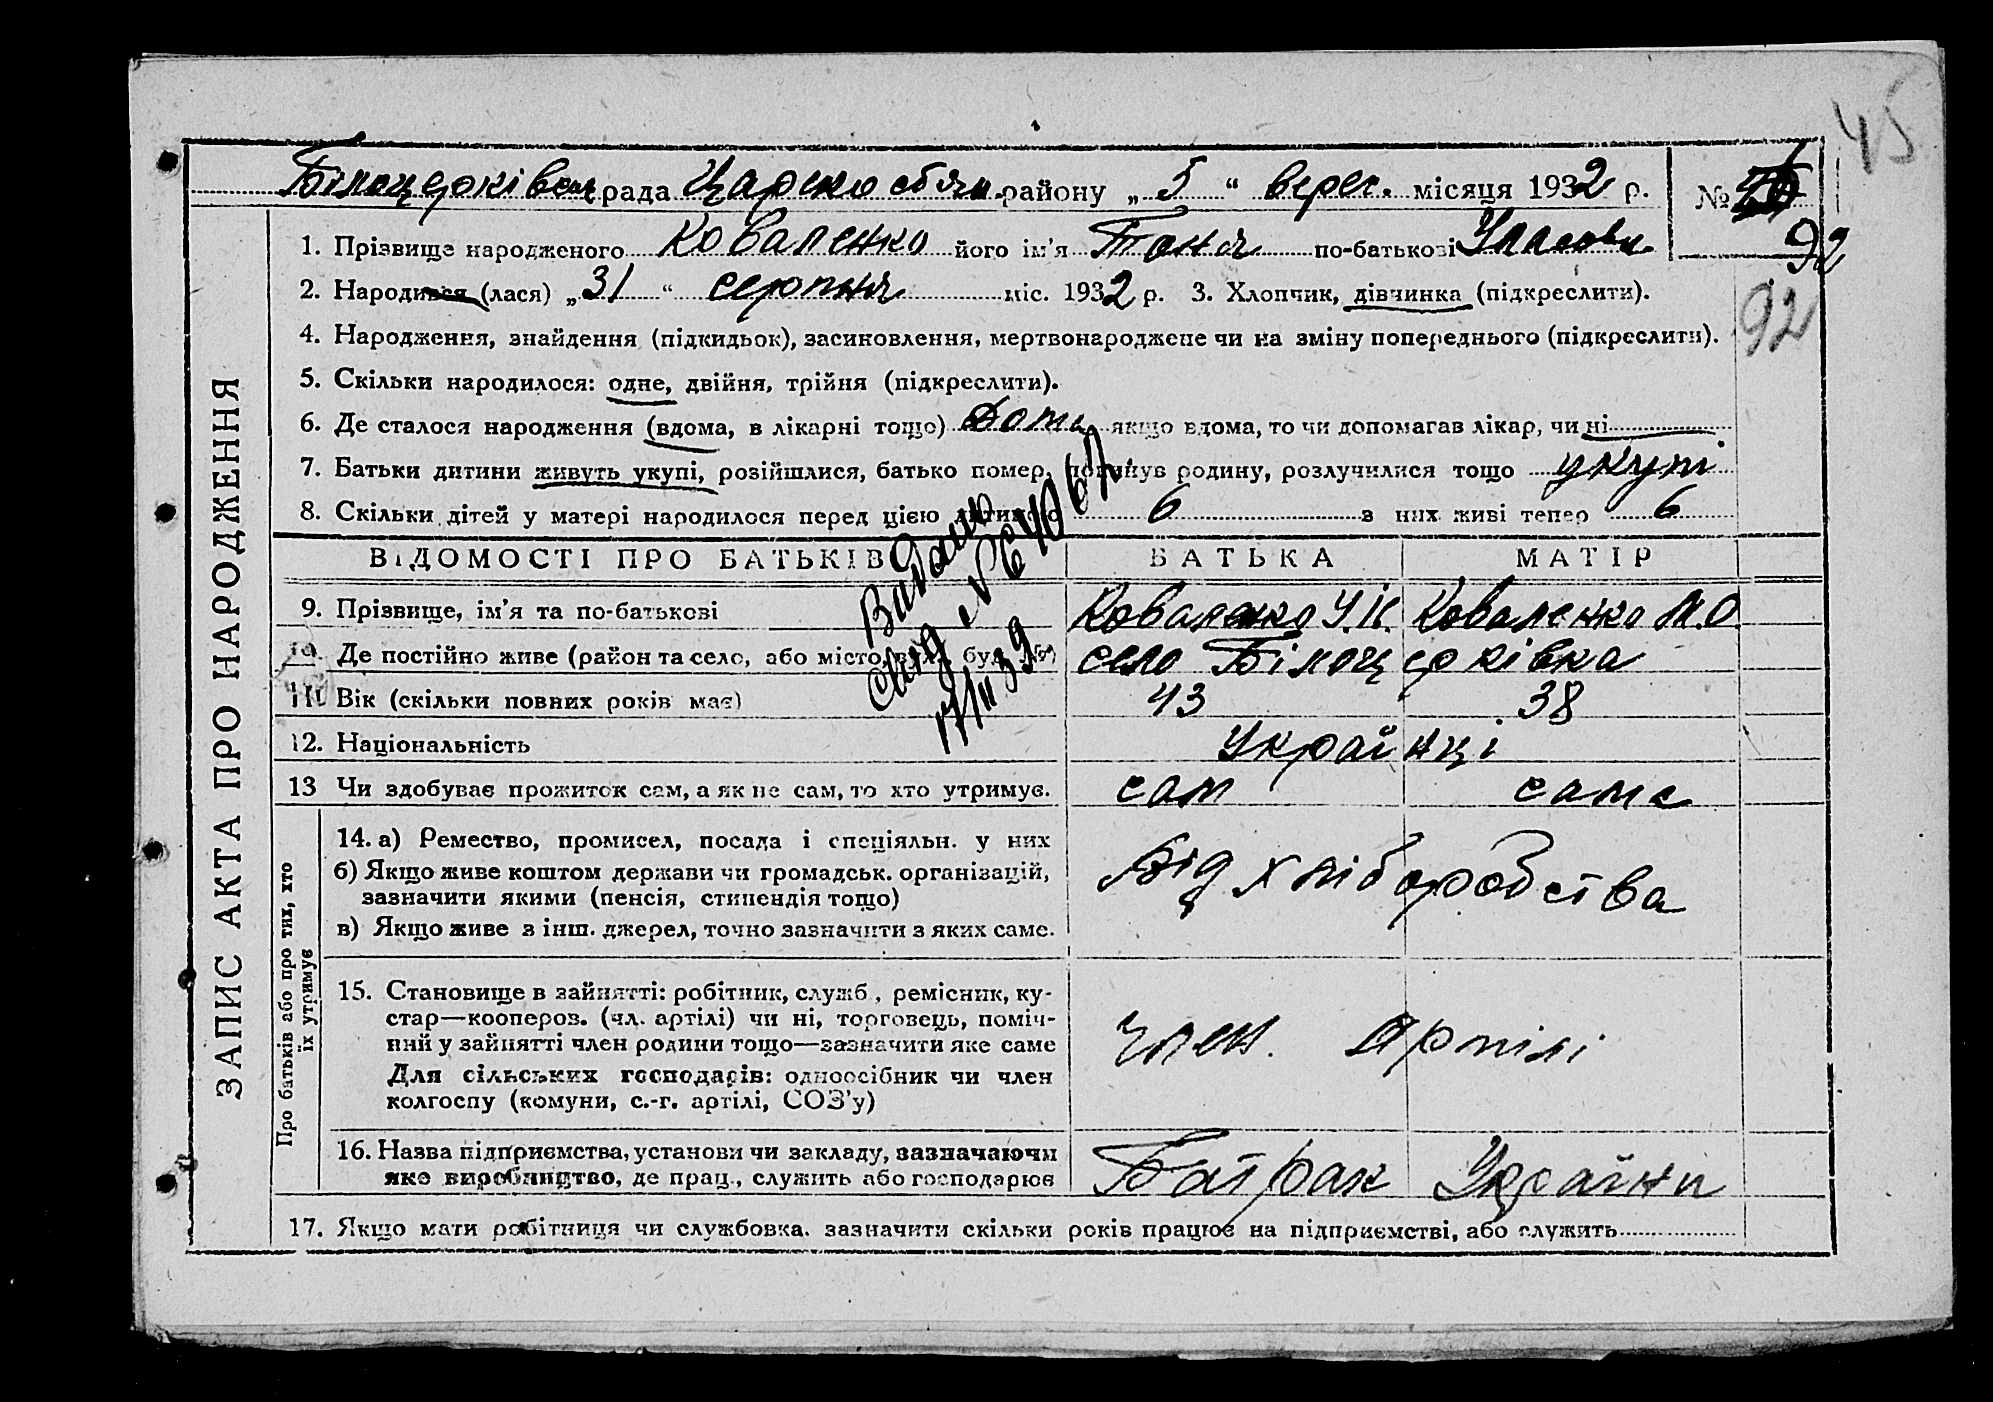 45
Білоцерківськ рада Царскосбян. району „ 5 “ верес. місяця 1932 р. №
92
1. Прізвище народженого Коваленко його ім'я Таня по-батькові Уласовн
2. Народився (лася) „ 31 “ серпня міс. 1932 р. 3. Хлопчик, дівчинка (підкреслити).
92
4. Народження, знайдення (підкидьок), засиновлення, мертвонароджене чи на зміну попереднього (підкреслити).
5. Скільки народилося: одне, двійня, трійня (підкреслити).
6. Де сталося народження (вдома, в лікарні тощо) дома якщо вдома, то чи допомагав лікар, чи ні
7. Батьки дитини живуть укупі, розійшлися, батько помер, покинув родину, розлучилися тощо укупі
8. Скільки дітей у матері народилося перед цією дитиною 6 з них живі тепер 6
ВІДОМОСТІ ПРО БАТЬКІВ БАТЬКА МАТІР
Видано
свід № 64061
17/II 39
9. Прізвище, ім'я та по-батькові Коваленко У.К. Коваленко М.О.
10. Де постійно живе (район та село, або місто, вул., буд. №) село Білоцерківка
11. Вік (скільки повних років має) 43 38
12. Національність Українці
13 Чи здобуває прожиток сам, а як не сам, то хто утримує. сам сама
14. а) Ремество, промисел, посада і спеціяльн. у них
б) Якщо живе коштом держави чи громадськ. організацій,
зазначити якими (пенсія, стипендія тощо)
в) Якщо живе з інш. джерел, точно зазначити з яких саме.
Від хліборобства
15. Становище в зайнятті: робітник, служб., ремісник, ку-
стар—кооперов. (чл. артілі) чи ні, торговець, поміч-
ний у зайнятті член родини тощо—зазначити яке саме
Для сільських господарів: одноосібник чи член
колгоспу (комуни, с.-г. артілі, СОЗ'у)
член. Артілі
16. Назва підприємства, установи чи закладу, зазначаючи
яке виробництво, де прац., служить або господарює
Батрак України
17. Якщо мати робітниця чи службовка, зазначити скільки років працює на підприємстві, або служить
ЗАПИС АКТА ПРО НАРОДЖЕННЯ
Про батьків або про тих, хто
їх утримує